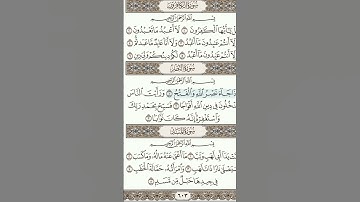 سُورَةُ الكَافِرُونَ
بِسْمِ ٱللَّهِ ٱلرَّحْمَٰنِ ٱلرَّحِيمِ
يَٰٓأَيُّهَا ٱلْكَٰفِرُونَ ١ لَآ أَعْبُدُ مَا تَعْبُدُونَ ٢
لَآ أَنتُمْ عَٰبِدُونَ مَآ أَعْبُدُ ٣ وَلَآ أَنَا۠ عَابِدٌ مَّا عَبَدتُّمْ ٤
لَآ أَنتُمْ عَٰبِدُونَ مَآ أَعْبُدُ ٥ لَكُمْ دِينُكُمْ وَلِيَ دِينِ ٦
سُورَةُ النَّصْرِ
بِسْمِ ٱللَّهِ ٱلرَّحْمَٰنِ ٱلرَّحِيمِ
إِذَا جَآءَ نَصْرُ ٱللَّهِ وَٱلْفَتْحُ ١ وَرَأَيْتَ ٱلنَّاسَ
يَدْخُلُونَ فِي دِينِ ٱللَّهِ أَفْوَاجًا ٢ فَسَبِّحْ بِحَمْدِ رَبِّكَ
وَٱسْتَغْفِرْهُ إِنَّهُۥ كَانَ تَوَّابًۢا ٣
سُورَةُ المَسَدِ
بِسْمِ ٱللَّهِ ٱلرَّحْمَٰنِ ٱلرَّحِيمِ
تَبَّتْ يَدَآ أَبِي لَهَبٍ وَتَبَّ ١ مَآ أَغْنَىٰ عَنْهُ مَالُهُۥ وَمَا كَسَبَ ٢
سَيَصْلَىٰ نَارًا ذَاتَ لَهَبٍ ٣ وَٱمْرَأَتُهُۥ حَمَّالَةَ ٱلْحَطَبِ ٤
فِي جِيدِهَا حَبْلٌ مِّن مَّسَدٍۭ ٥
٦٠٣